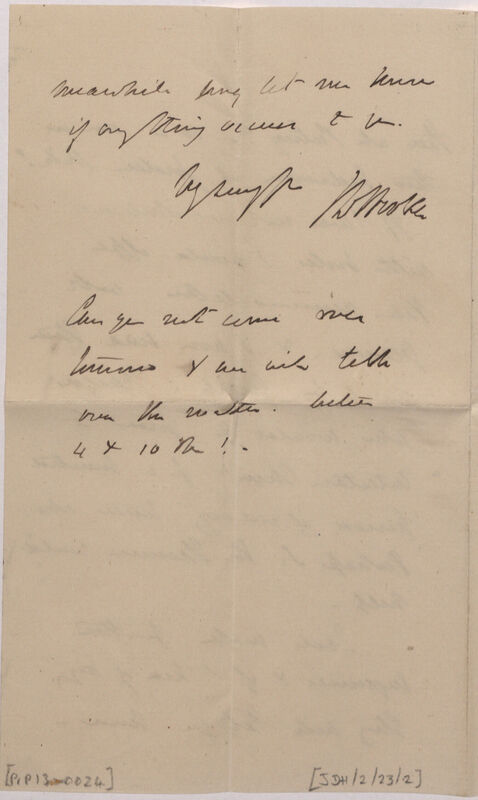 meanwhile pray let me know
if anything occurs to you.
Very sincerely yrs JDHooker
Can you not come over
tomorrow & we will talk
over the matter. between
4 & 10 PM!.
[PIP13-0024]
[JDH/2/23/2]